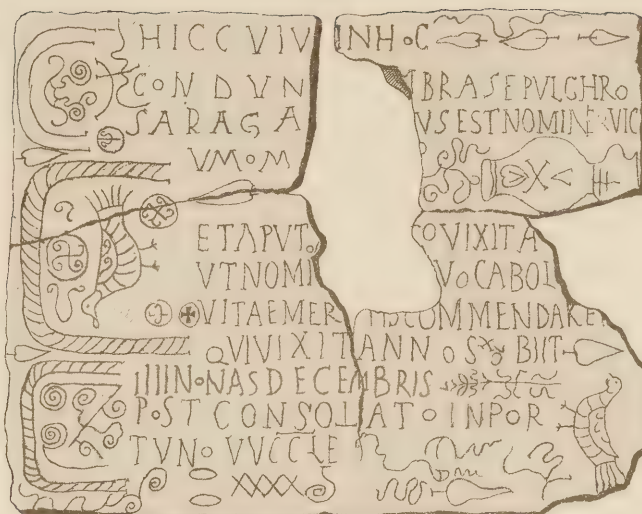 HICCVIV INHoC
CoNDVN MBRASEPVLCHRo
SARAGA VSESTNOMINE VIC
VMoM
ETAPVTo COVIXITA
VTNOMI VoCABOI
VITAEMER COMMENDARE
QVIVIXITANNoS BIIT
IIIINoNASDECEMBRIS
PoSTCONSOLATo INPoR
TVNo VVCCLE
XXXX